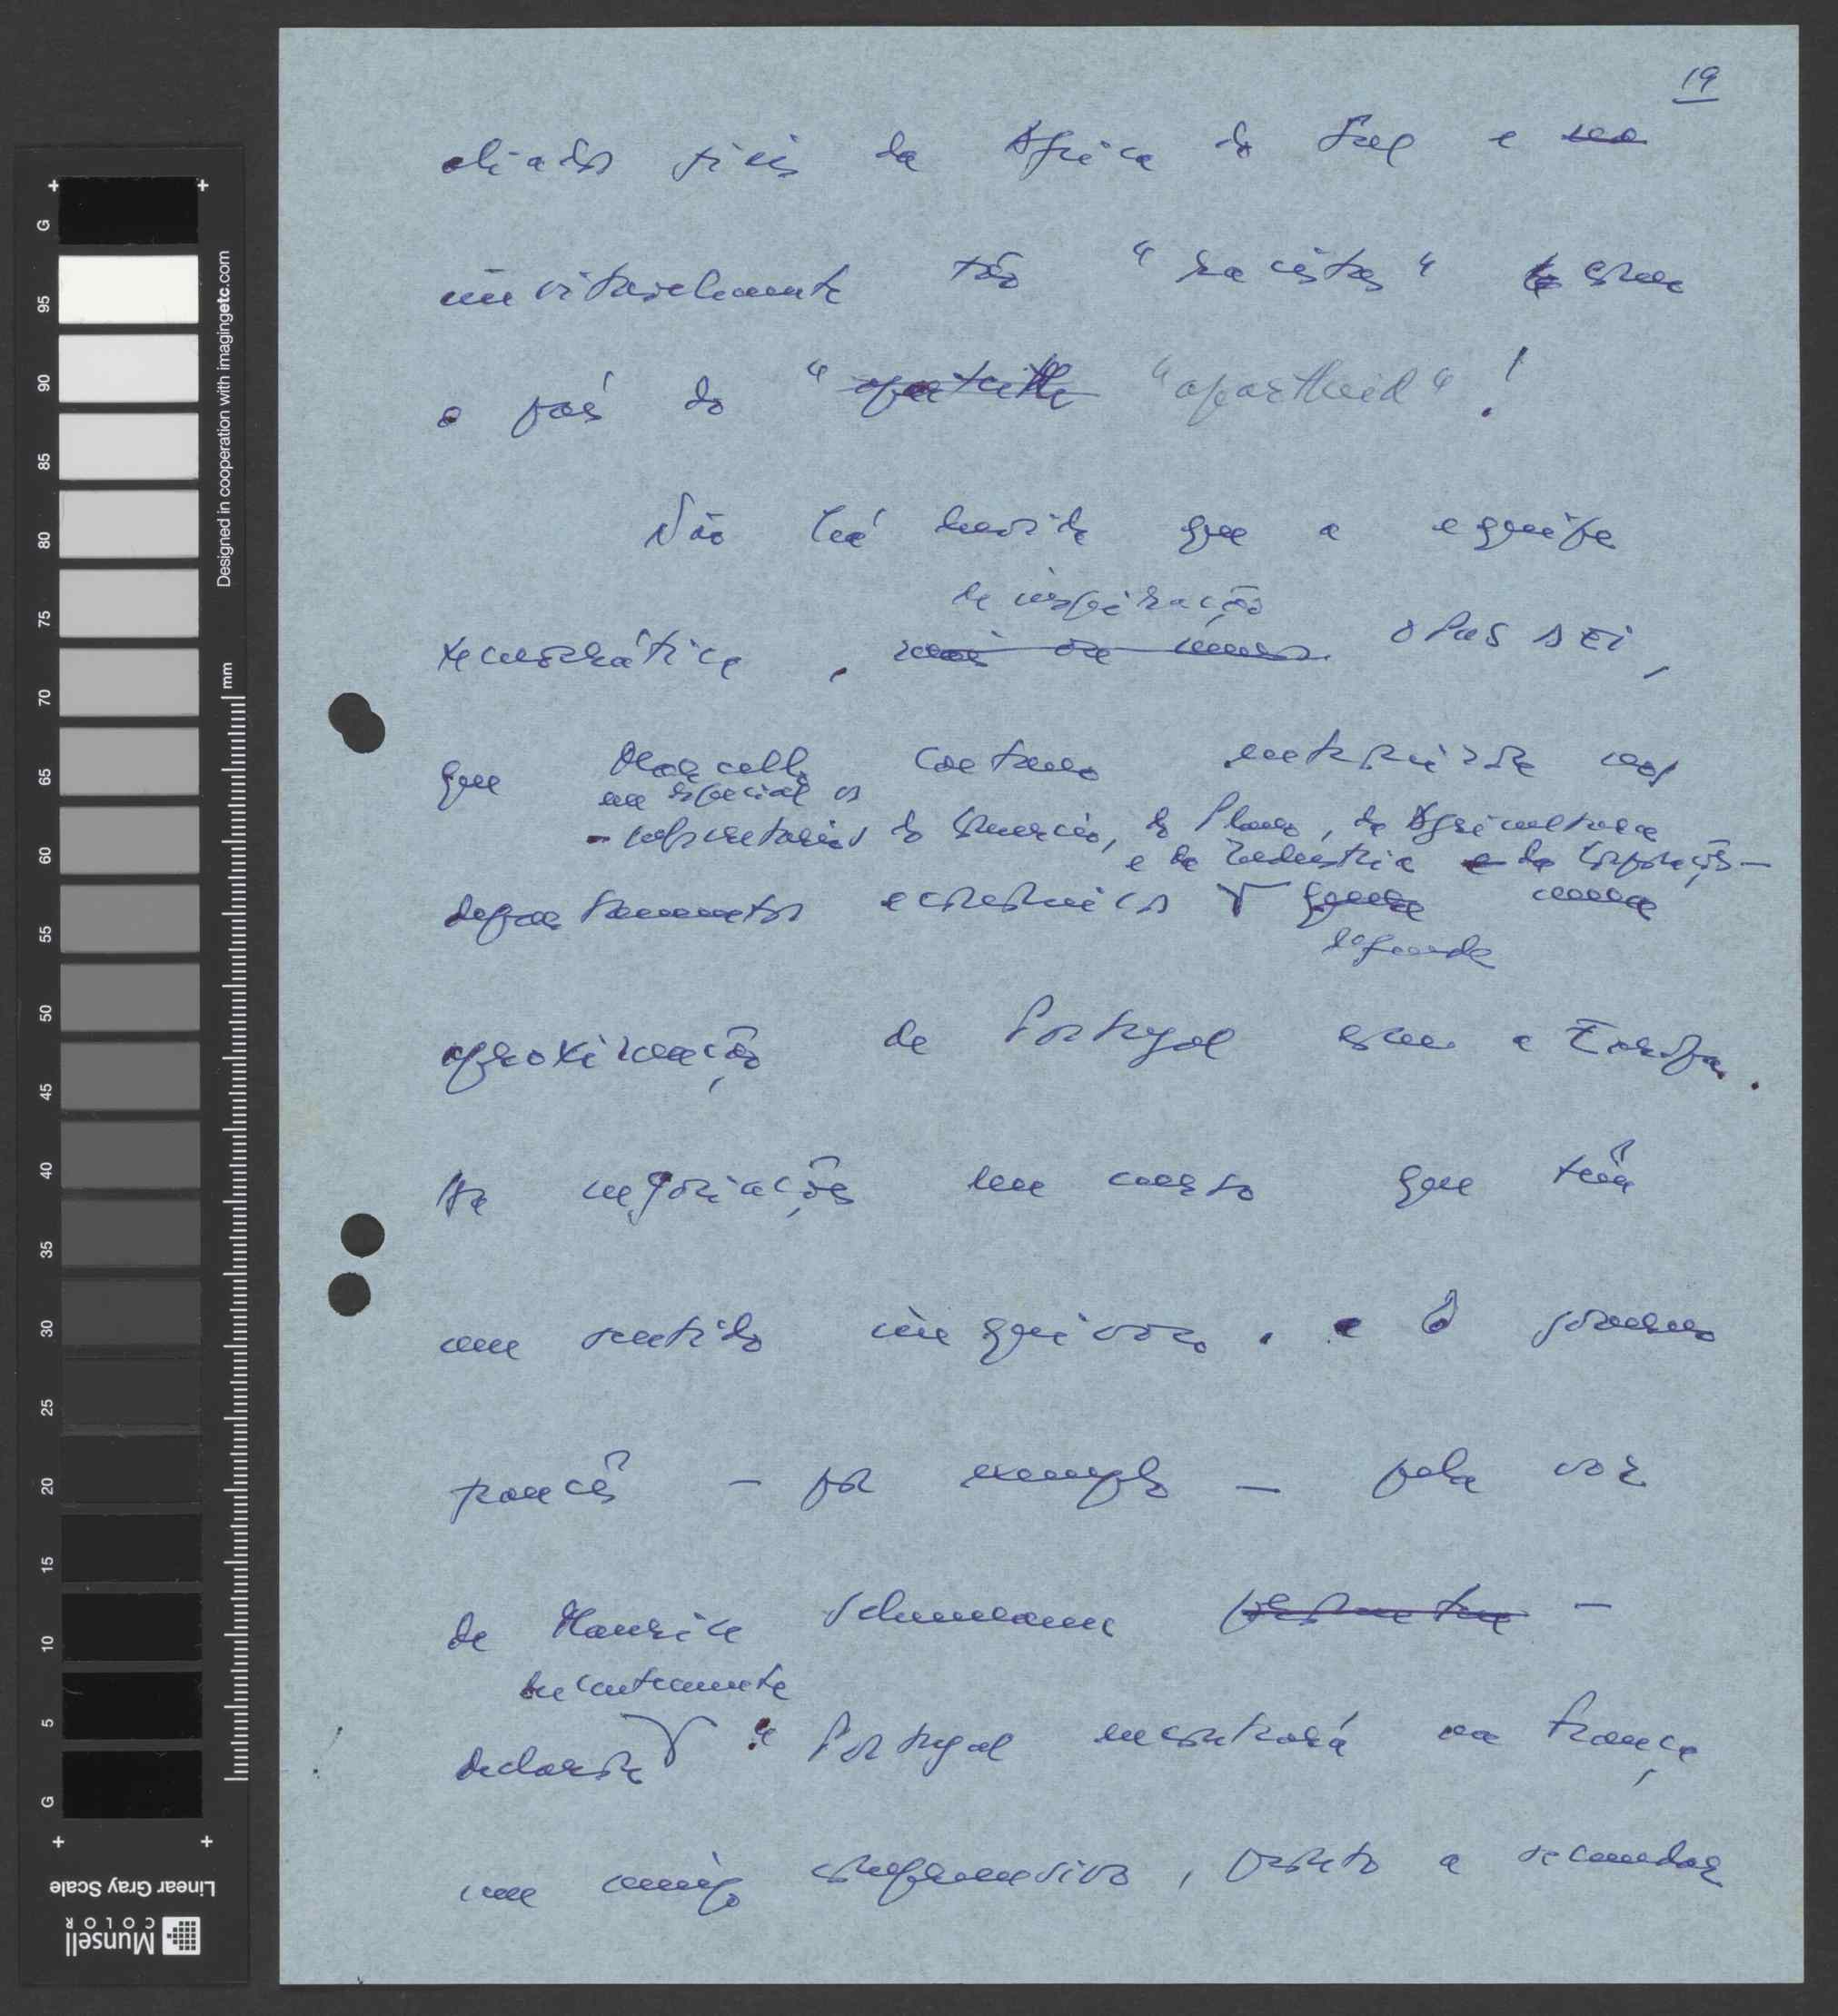 19
aliados fiéis da África do Sul e
inevitavelmente tão "racistas" como
o país do " "apartheid"!
Não há dúvida que a equipe
de inspiração
tecnocrática, OPUS DEI,
que Marcello Caetano entronizou nos
em especial os
- subsecretários do Comércio, do Plano, da Agricultura
e da Indústria e da Corporações -
departamentos económicos numa
aproximação de Portugal com a Europa.
As negociações em curso que têm
um sentido inequívoco. O governo
francês - por exemplo - pela voz
de Maurice Schumann -
recentemente
declarou "Portugal encontrará na França
um amigo compreensivo, pronto a secundar
G 95 90 85 80 75 70 65 60 55 50 45 40 35 30 25 20 15 10 5 G
mm
Designed in cooperation with imagingetc.com
Linear Gray Scale
Munsell
COLOR